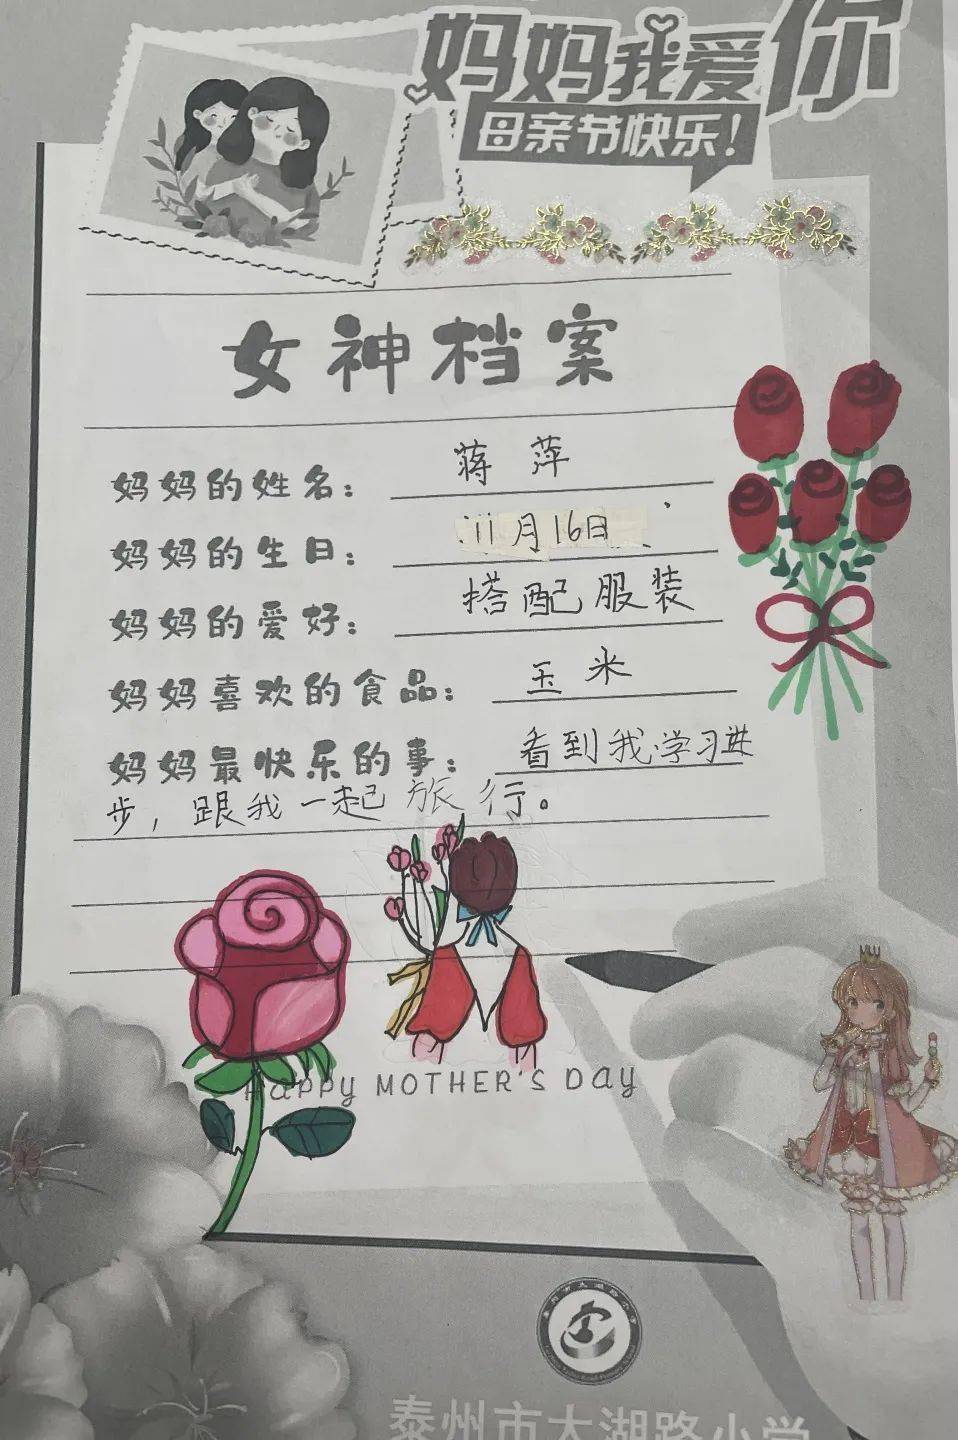 妈妈我爱你
母亲节快乐!
女神档案
妈妈的姓名: 蒋萍
妈妈的生日: 11月16日
妈妈的爱好: 搭配服装
妈妈喜欢的食品: 玉米
妈妈最快乐的事: 看到我学习进
步，跟我一起旅行。
HAPPY MOTHER'S DAY
泰州市大湖路小学